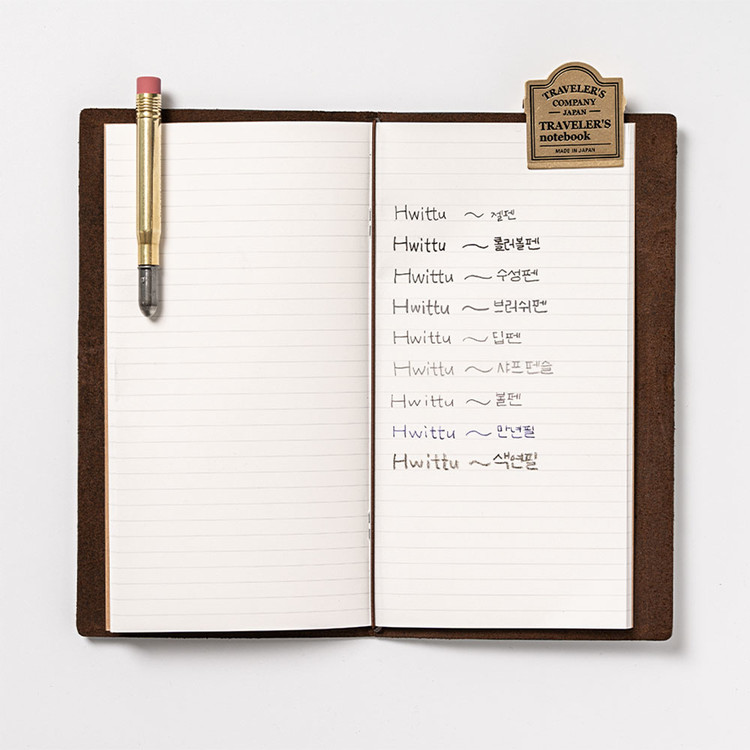 TRAVELER'S
COMPANY
JAPAN
TRAVELER'S
notebook
MADE IN JAPAN
Hwittu ~ 젤펜
Hwittu ~ 롤러볼펜
Hwittu ~ 수성펜
Hwittu ~ 브러쉬펜
Hwittu ~ 딥펜
Hwittu ~ 샤프펜슬
Hwittu ~ 볼펜
Hwittu ~ 만년필
Hwittu ~ 색연필